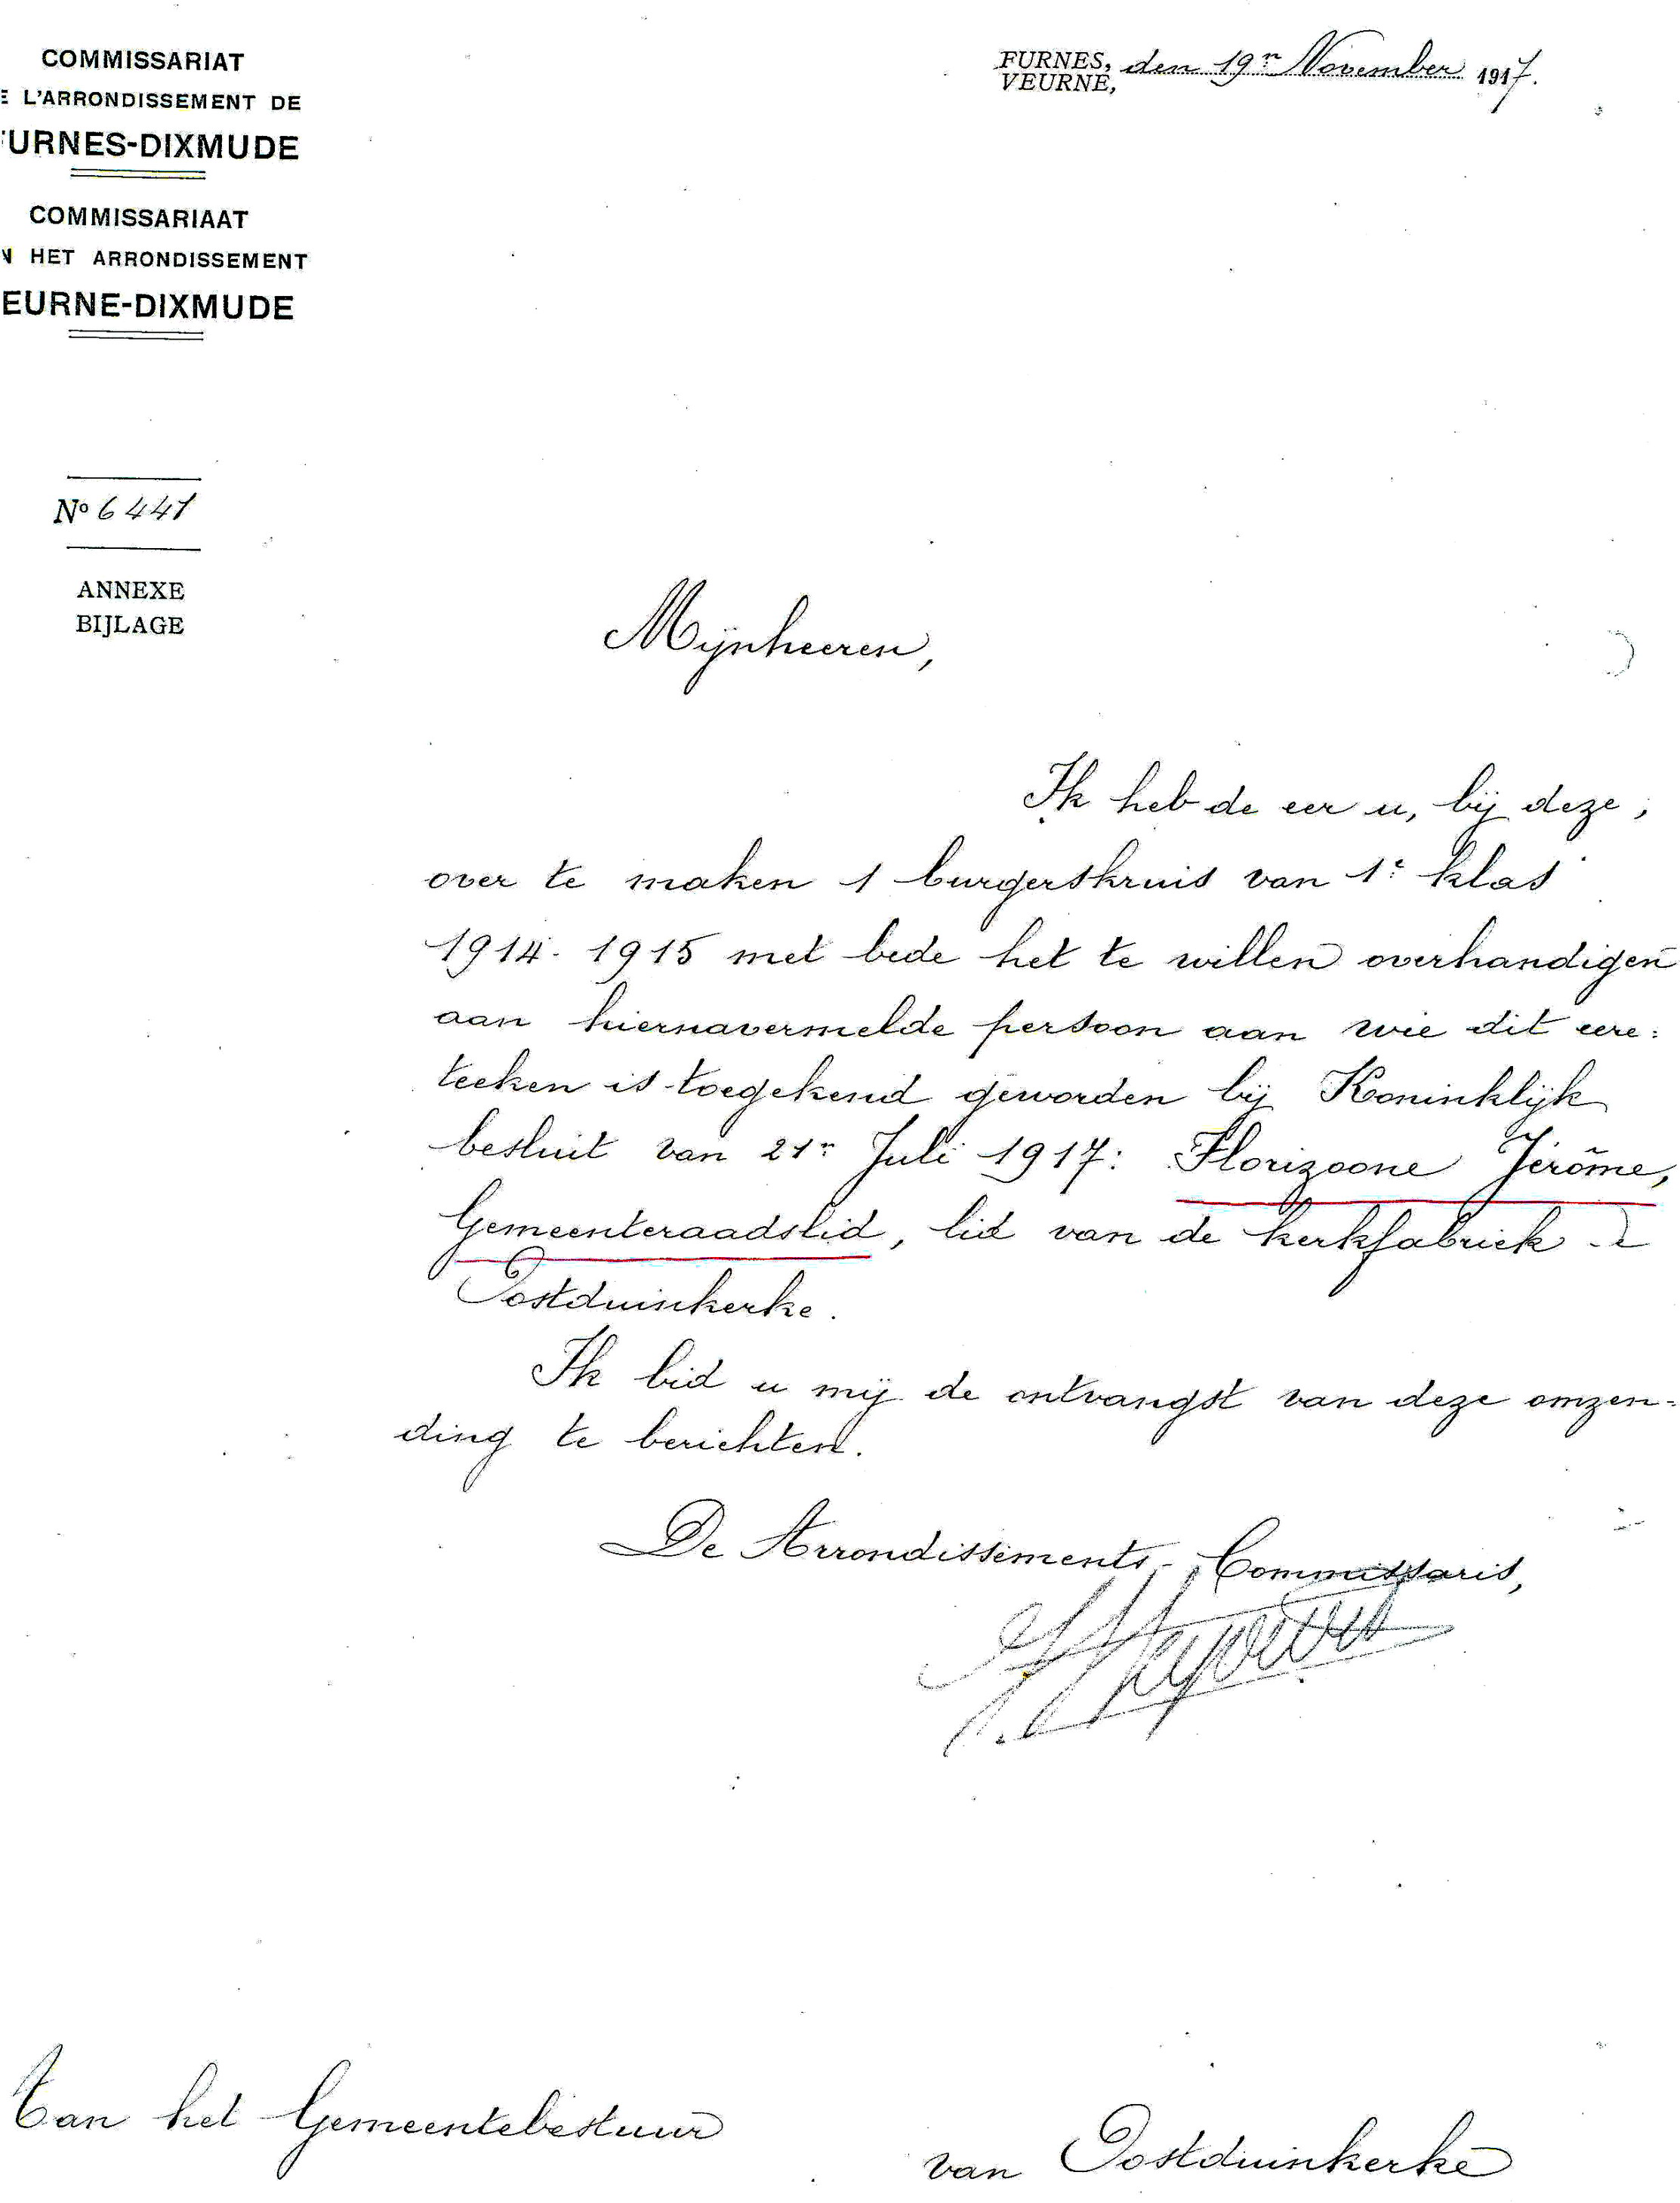 COMMISSARIAT
E L'ARRONDISSEMENT DE
URNES-DIXMUDE
COMMISSARIAAT
N HET ARRONDISSEMENT
EURNE-DIXMUDE
FURNES,
VEURNE,
den 19n November 1917.
No 6441
ANNEXE
BIJLAGE
Mijnheeren,
Ik heb de eer u, bij deze,
over te maken 1 burgerskruis van 1e klas
1914-1915 met bede het te willen overhandigen
aan hiernavermelde persoon aan wie dit eere:
teeken is toegekend geworden bij Koninklijk
besluit van 21n Juli 1917: Florizoone Jérôme,
Gemeenteraadslid, lid van de kerkfabriek
Oostduinkerke.
Ik bid u mij de ontvangst van deze omzen-
ding te berichten.
De Arrondissements-Commissaris,
Aan het Gemeentebestuur
van Oostduinkerke